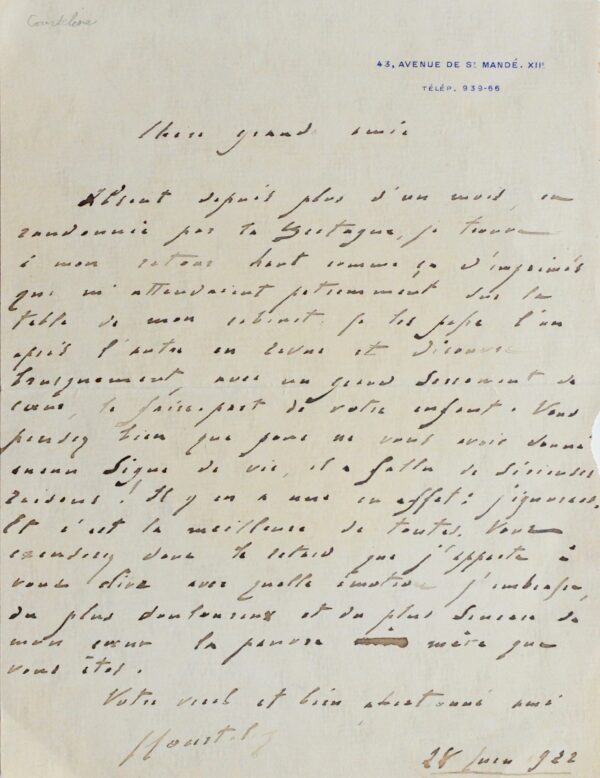 Courteline
43, AVENUE DE St MANDÉ. XIIe
TÉLÉP. 939-66
Chère grand amie
Absent depuis plus d'un mois, en
randonnée par la Bretagne, je trouve
à mon retour haut comme ça d'imprimés
qui m'attendaient patiemment sur la
table de mon cabinet. Je les passe l'un
après l'autre en revue et découvre
brusquement, avec un grand serrement de
cœur, le faire-part de votre enfant. Vous
pensez bien que pour ne vous avoir donné
aucun signe de vie, il a fallu de sérieuses
raisons ! Il y en a une en effet : j'ignorais.
Et c'est la meilleure de toutes. Vous
excuserez donc le retard que j'apporte à
vous dire avec quelle émotion j'embrasse,
du plus douloureux et du plus sincère de
mon cœur la pauvre mère que
vous êtes.
Votre vieil et bien affectionné ami
28 Juin 1922